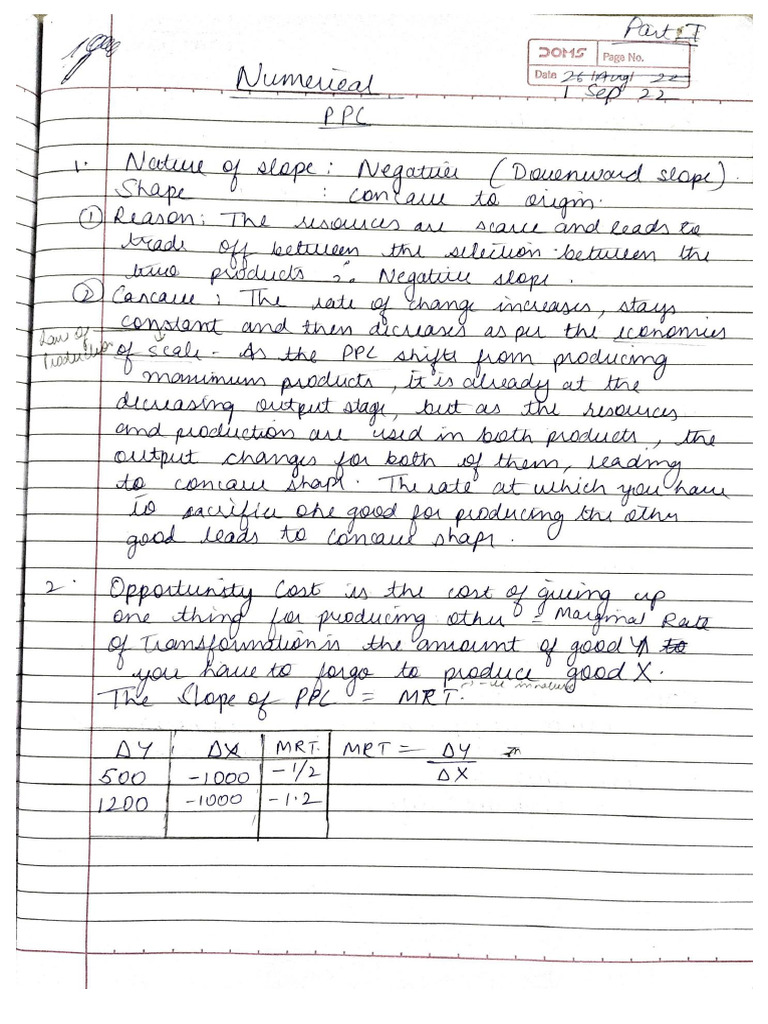 Part I
DOMS Page No.
Date 26 Aug 22
1 Sep 22
Numerical
PPC
1. Nature of slope : Negative (Downward slope).
Shape : concave to origin.
① Reason : The resources are scarce and leads to
trade off between the selection between the
two products ∴ Negative slope.
② Concave : The rate of change increases, stays
constant and then decreases as per the economies
Law of Production
of scale - As the PPC shifts from producing
maximum products, it is already at the
decreasing output stage, but as the resources
and production are used in both products, the
output changes for both of them, leading
to concave shape. The rate at which you have
to sacrifice one good for producing the other
good leads to concave shape.
2. Opportunity Cost is the cost of giving up
one thing for producing other = Marginal Rate
of Transformation is the amount of good Y to
you have to forgo to produce good X.
The Slope of PPC = MRT.
ΔY ΔX MRT. MRT = ΔY
500 -1000 -1/2 ΔX
1200 -1000 -1.2